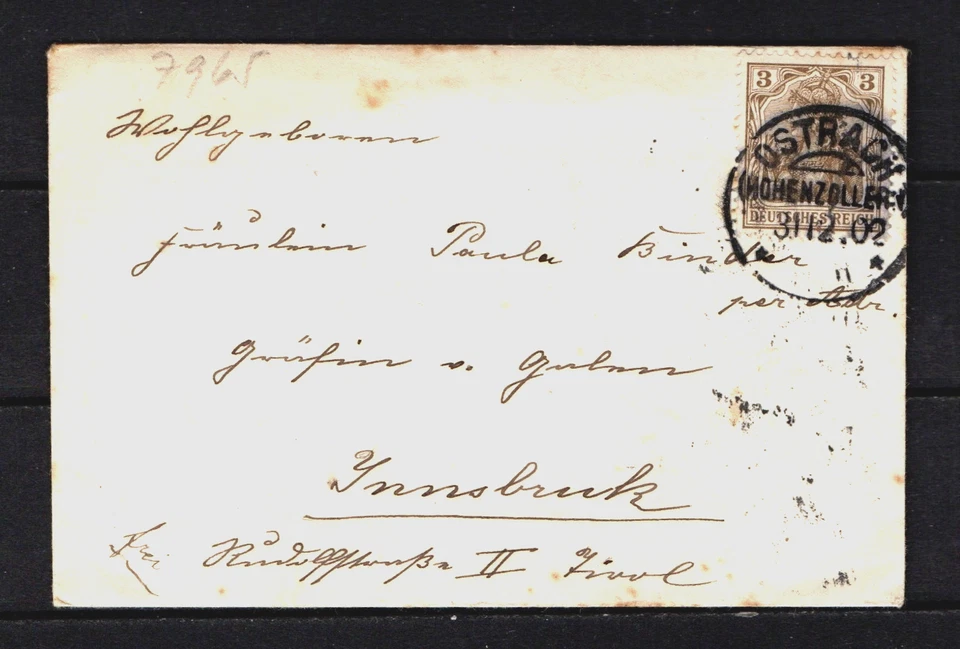 7965
3 3
DEUTSCHES REICH
OSTRACH
(HOHENZOLLERN)
31.12.02
Wohlgeboren
Fräulein Paula Binder
per Adr.
Gräfin v. Galen
Innsbruk
Frei
Rudolfstraße II Tirol